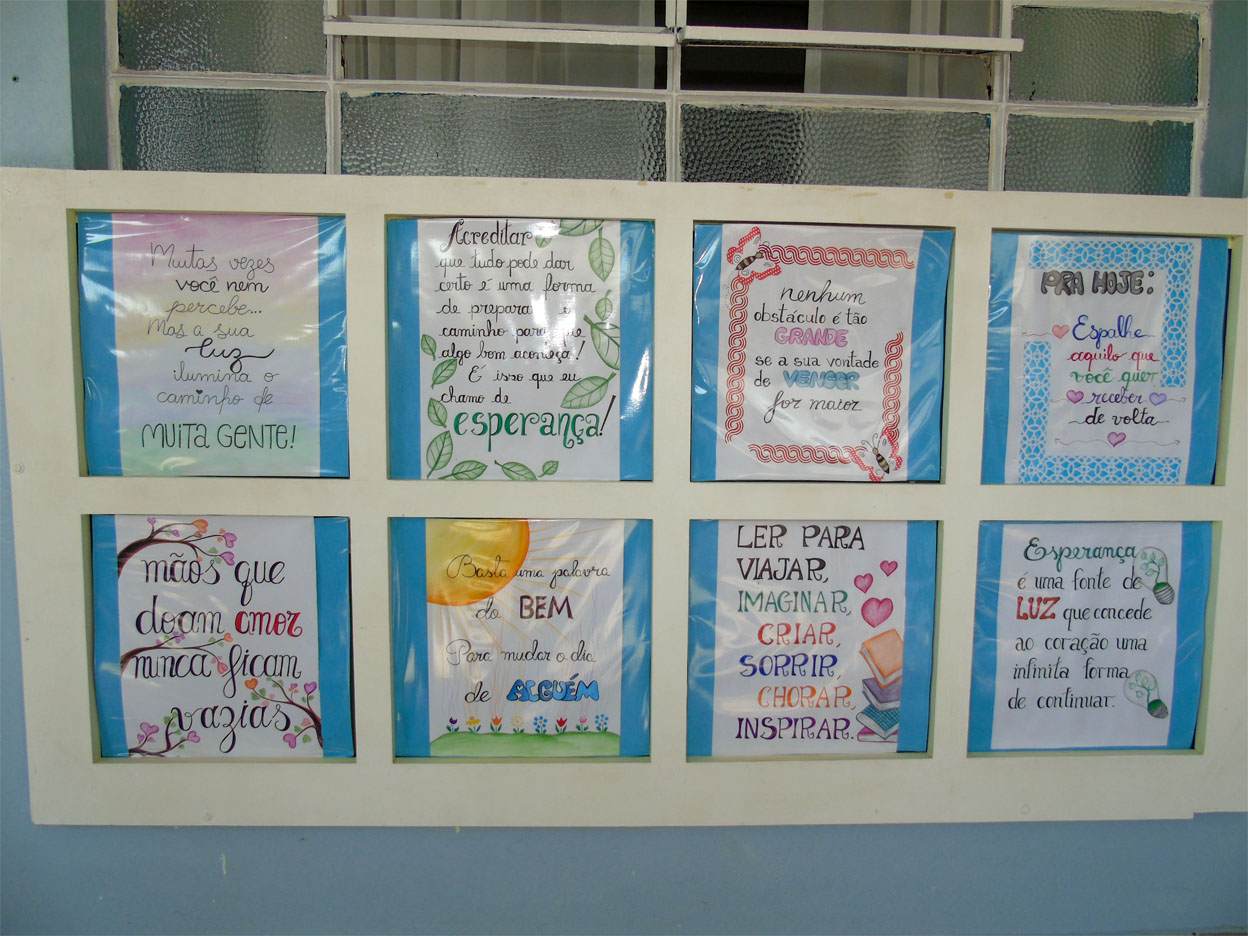 Muitas vezes
você nem
percebe...
Mas a sua
luz
ilumina o
caminho de
MUITA GENTE!
Acreditar
que tudo pode dar
certo é uma forma
de preparar o
caminho para que
algo bom aconteça!
É isso que eu
chamo de
esperança!
nenhum
obstáculo é tão
GRANDE
se a sua vontade
de VENCER
for maior
PRA HOJE:
Espalhe
aquilo que
você quer
receber
de volta
mãos que
doam amor
nunca ficam
vazias
Basta uma palavra
do BEM
Para mudar o dia
de ALGUÉM
LER PARA
VIAJAR,
IMAGINAR,
CRIAR,
SORRIR,
CHORAR,
INSPIRAR.
Esperança
é uma fonte de
LUZ que concede
ao coração uma
infinita forma
de continuar.